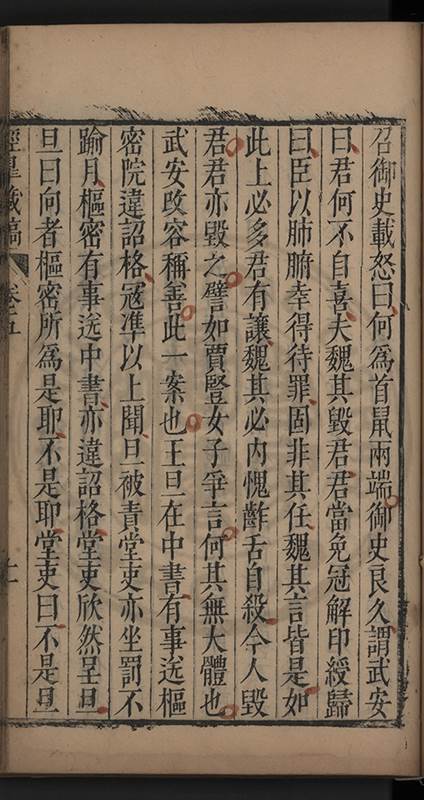 召御史載怒曰何為首鼠兩端御史良久謂武安
曰君何不自喜夫魏其毀君君當免冠解印綬歸
曰臣以肺腑幸得待罪固非其任魏其言皆是如
此上必多君有讓魏其必內愧齰舌自殺今人毀
君君亦毀之譬如賈豎女子爭言何其無大體也
武安改容稱善此一案也王旦在中書有事送樞
密院違詔格寇準以上聞旦被責堂吏亦坐罰不
踰月樞密有事送中書亦違詔格堂吏欣然呈旦
旦曰向者樞密所為是耶不是耶堂吏曰不是旦
卷五
十一